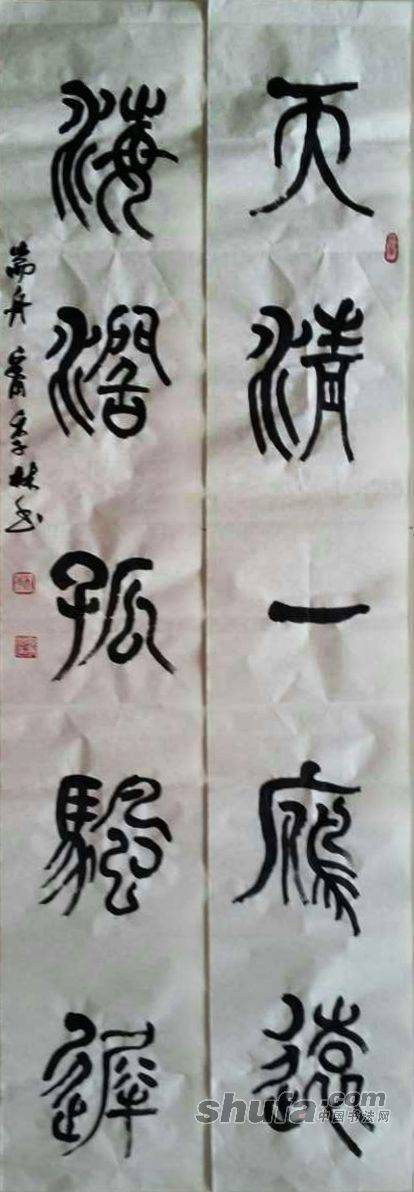 天清一鴈遠
海闊孤颿遲
季林书
shufa.com
中国书法网